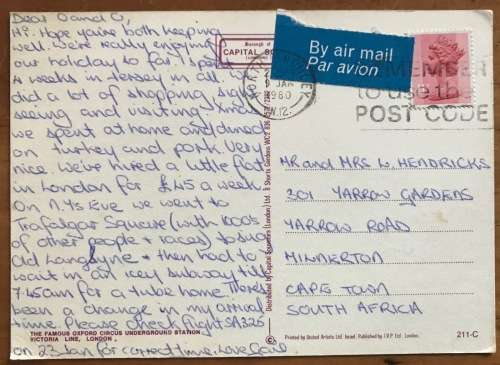 Dear O and O,
Hi. Hope you're both keeping
well. We're really enjoying
our holiday so far. I spent
4 weeks in Jersey in all. We
did a lot of shopping, sight
seeing and visiting. Xmas
we spent at home and dined
on turkey and pork. Very
nice. We've hired a little flat
in London for £45 a week.
On N.Ys Eve we went to
Trafalgar Square (with 1000's
of other people + races) to sing
Old Langsyne + then had to
wait in an icey subway till
7.45am for a tube home. There's
been a change in my arrival
time. Please check flight SA235
on 23 Jan for correct time. Love
THE FAMOUS OXFORD CIRCUS UNDERGROUND STATION
VICTORIA LINE, LONDON.
Borough of
CAPITAL
Distributed by Capital Souvenirs (London) Ltd. Shorts Gardens WC2
By air mail
Par avion
JAN
1980
W.12
REMEMBER
to use the
POST CODE
MR and MRS W. HENDRICKS
201 YARROW GARDENS
YARROW ROAD
MINNERTON
CAPE TOWN
SOUTH AFRICA
Printed by United Artists Ltd. Israel. Published by I.V.P. Ltd.
211-C